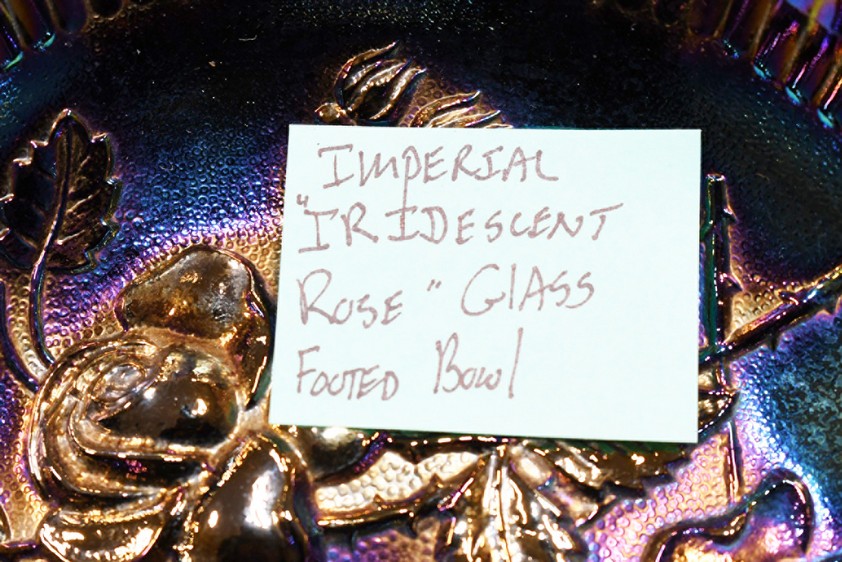 IMPERIAL
"IRIDESCENT
ROSE" GlASS
FOOTED BOWl